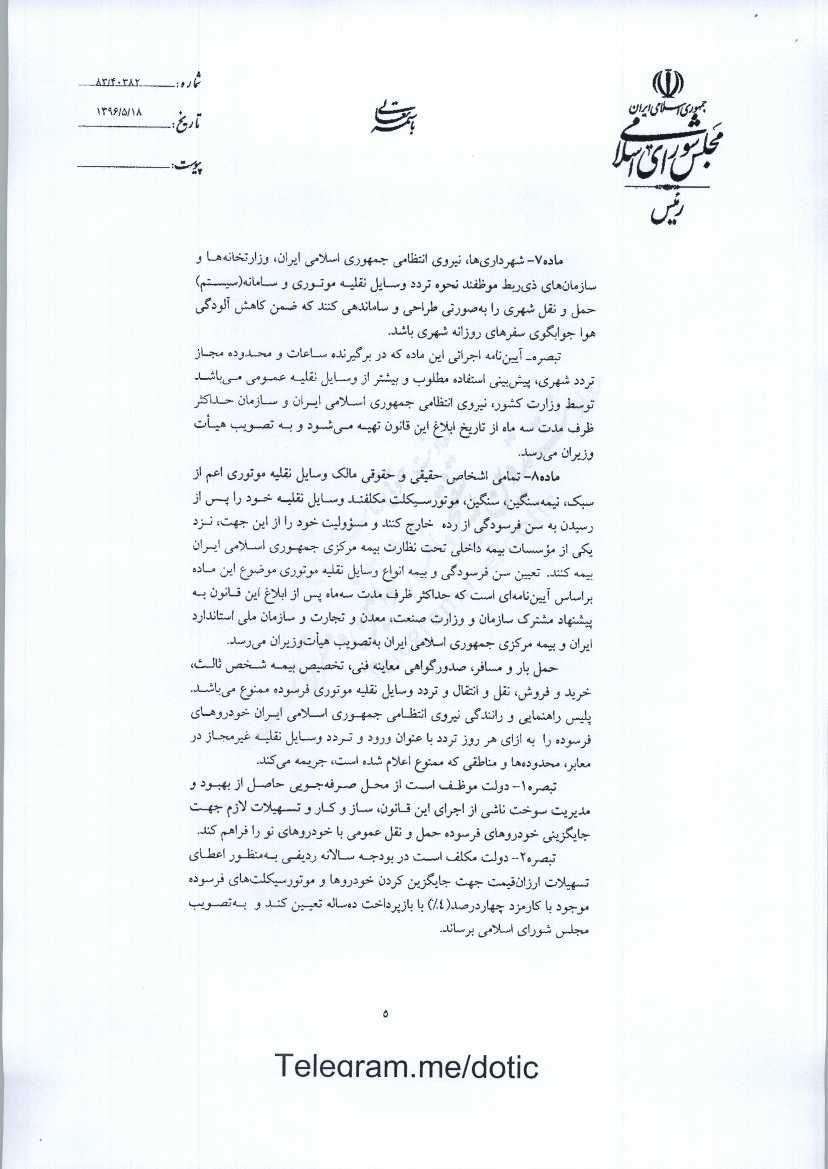 جمهوری اسلامی ایران
مجلس شورای اسلامی
رئیس
باسمه تعالی
شماره: ۸۳/۴۰۳۸۲
تاریخ: ۱۳۹۶/۵/۱۸
پیوست:
ماده۷- شهرداری‌ها، نیروی انتظامی جمهوری اسلامی ایران، وزارتخانه‌ها و
سازمان‌های ذی‌ربط موظفند نحوه تردد وسایل نقلیه موتوری و سامانه(سیستم)
حمل و نقل شهری را به‌صورتی طراحی و ساماندهی کنند که ضمن کاهش آلودگی
هوا جوابگوی سفرهای روزانه شهری باشد.
تبصره- آیین‌نامه اجرائی این ماده که در برگیرنده ساعات و محدوده مجاز
تردد شهری، پیش‌بینی استفاده مطلوب و بیشتر از وسایل نقلیه عمومی می‌باشد
توسط وزارت کشور، نیروی انتظامی جمهوری اسلامی ایران و سازمان حداکثر
ظرف مدت سه ماه از تاریخ ابلاغ این قانون تهیه می‌شود و به تصویب هیأت
وزیران می‌رسد.
ماده۸- تمامی اشخاص حقیقی و حقوقی مالک وسایل نقلیه موتوری اعم از
سبک، نیمه‌سنگین، سنگین، موتورسیکلت مکلفند وسایل نقلیه خود را پس از
رسیدن به سن فرسودگی از رده خارج کنند و مسؤولیت خود را از این جهت، نزد
یکی از مؤسسات بیمه داخلی تحت نظارت بیمه مرکزی جمهوری اسلامی ایران
بیمه کنند. تعیین سن فرسودگی و بیمه انواع وسایل نقلیه موتوری موضوع این ماده
براساس آیین‌نامه‌ای است که حداکثر ظرف مدت سه‌ماه پس از ابلاغ این قانون به
پیشنهاد مشترک سازمان و وزارت صنعت، معدن و تجارت و سازمان ملی استاندارد
ایران و بیمه مرکزی جمهوری اسلامی ایران به‌تصویب هیأت‌وزیران می‌رسد.
حمل بار و مسافر، صدورگواهی معاینه فنی، تخصیص بیمه شخص ثالث،
خرید و فروش، نقل و انتقال و تردد وسایل نقلیه موتوری فرسوده ممنوع می‌باشد.
پلیس راهنمایی و رانندگی نیروی انتظامی جمهوری اسلامی ایران خودروهای
فرسوده را به ازای هر روز تردد با عنوان ورود و تردد وسایل نقلیه غیرمجاز در
معابر، محدوده‌ها و مناطقی که ممنوع اعلام شده است، جریمه می‌کند.
تبصره۱- دولت موظف است از محل صرفه‌جویی حاصل از بهبود و
مدیریت سوخت ناشی از اجرای این قانون، ساز و کار و تسهیلات لازم جهت
جایگزینی خودروهای فرسوده حمل و نقل عمومی با خودروهای نو را فراهم کند.
تبصره۲- دولت مکلف است در بودجه سالانه ردیفی به‌منظور اعطای
تسهیلات ارزان‌قیمت جهت جایگزین کردن خودروها و موتورسیکلت‌های فرسوده
موجود با کارمزد چهاردرصد(۴٪) با بازپرداخت ده‌ساله تعیین کند و به‌تصویب
مجلس شورای اسلامی برساند.
۵
Telegram.me/dotic